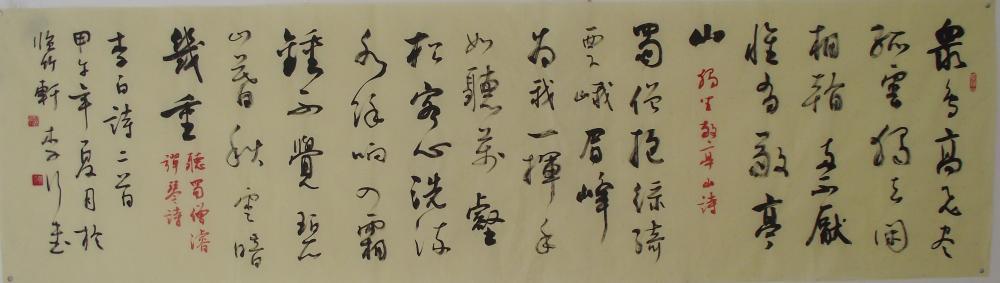 眾鳥高飞尽
孤雲獨去闲
相看兩不厭
惟有敬亭
山
獨坐敬亭山詩
蜀僧抱綠綺
西下峨眉峰
為我一揮手
如聽萬壑
松客心洗流
水餘响入霜
鐘不覺碧
山暮秋雲暗
幾重
聽蜀僧濬
彈琴詩
李白詩二首
甲午年夏月於
竹軒